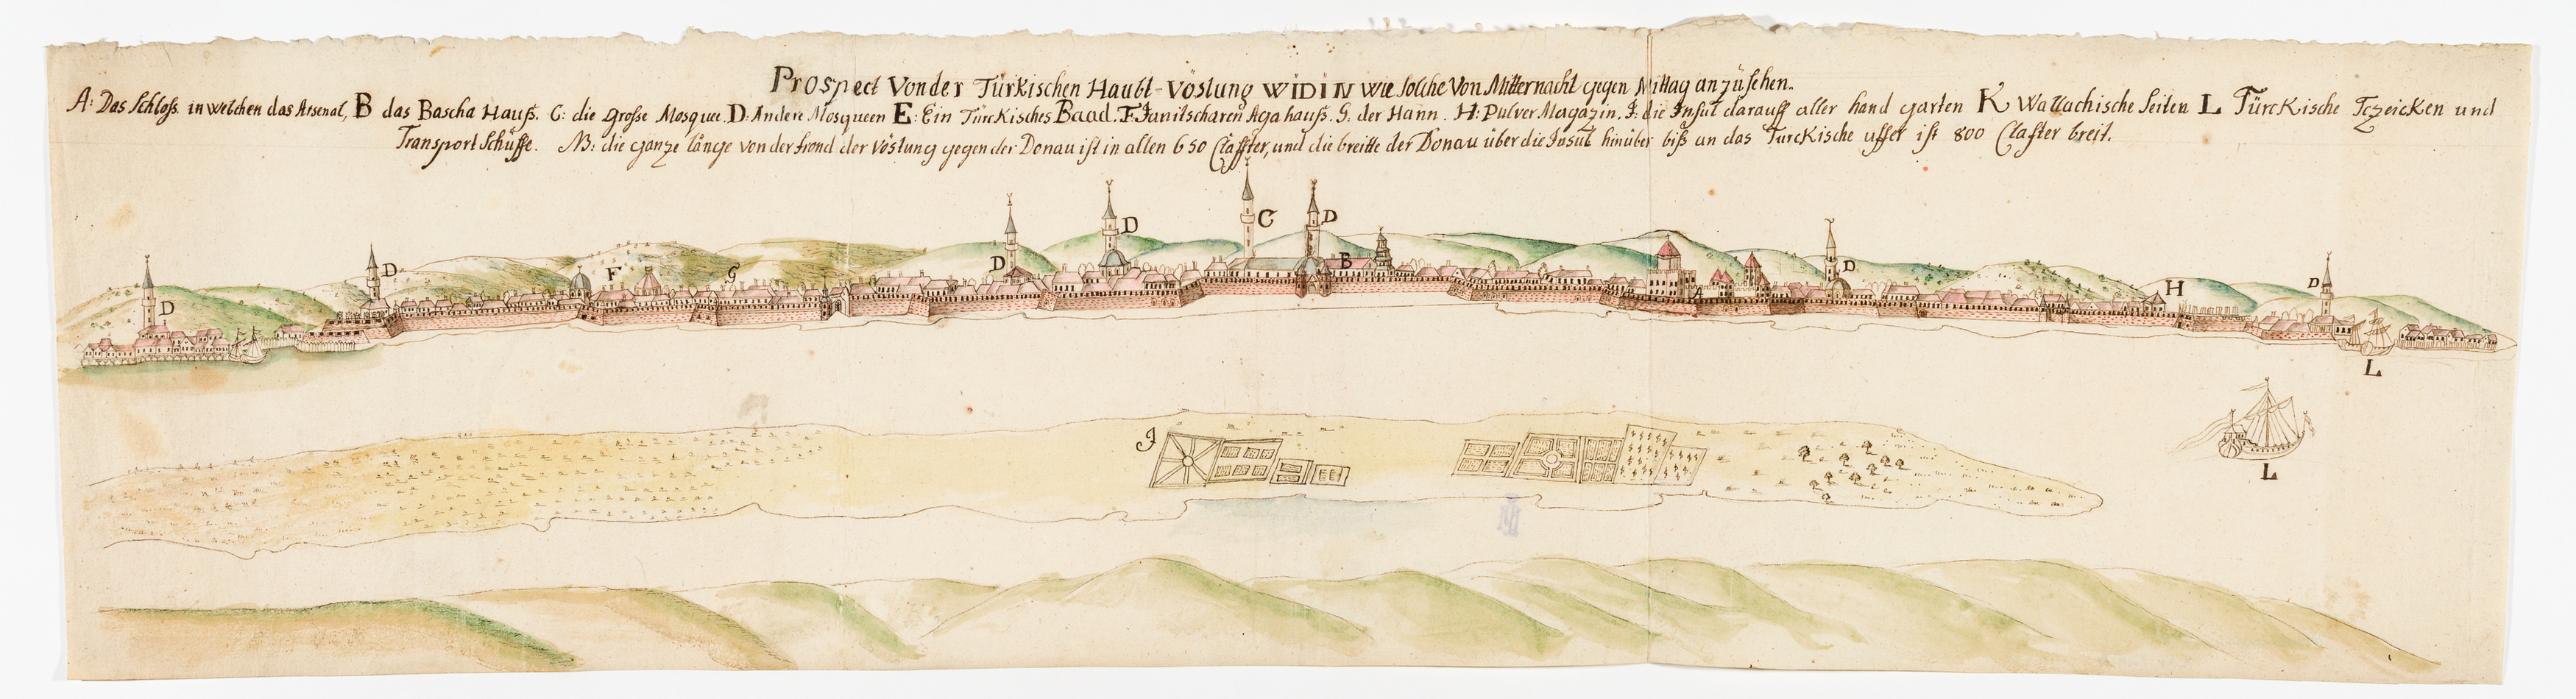 Prospect Von der Türkischen Haubt-Vöstung WIDIN wie solche Von Mitternacht gegen Mittag anzüsehen.
A: Das Schloss in welchen das Arsenal, B das Bascha Hauß. C: die Grosse Mosquee. D: Andere Mosqueen E: Ein Türckisches Baad. F. Janitscharen Aga hauß. G. der Hann. H: Pulver Magazin. J: die Insul darauff aller hand garten K Wallachische seiten L Türckische Tzeicken und
Transport Schüffe. NB: die gantze länge von der frond der Vöstung gegen der Donau ist in allen 650 Claffter, und die breitte der Donau über die Insul hinüber biß an das Türckische uffer ist 800 Clafter breit.
C D
D
D B
D
D F G
D
D
A
H
D
L
J
L